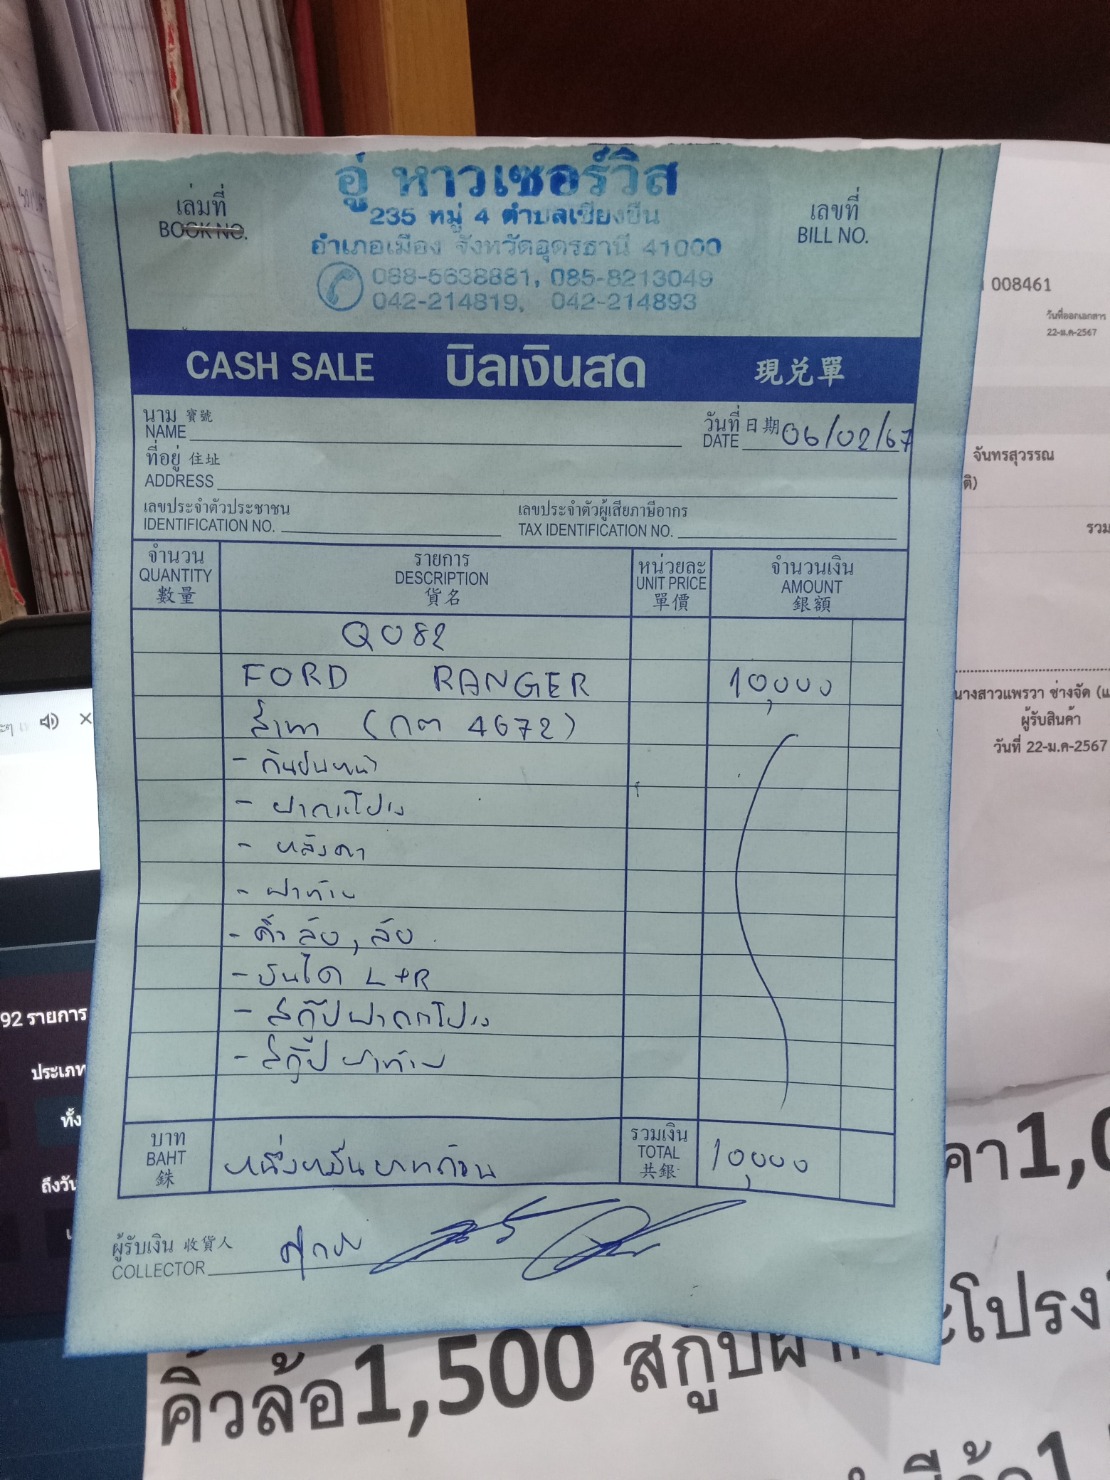 อู่ หาวเซอร์วิส
235 หมู่ 4 ตำบลเชียงยืน
อำเภอเมือง จังหวัดอุดรธานี 41000
088-5638881, 085-8213049
042-214819, 042-214893
เล่มที่
BOOK NO.
เลขที่
BILL NO.
CASH SALE บิลเงินสด 現兌單
นาม 寶號
NAME
วันที่ 日期 06/02/67
DATE
ที่อยู่ 住址
ADDRESS
เลขประจำตัวประชาชน
IDENTIFICATION NO.
เลขประจำตัวผู้เสียภาษีอากร
TAX IDENTIFICATION NO.
จำนวน
QUANTITY
數量
รายการ
DESCRIPTION
貨名
หน่วยละ
UNIT PRICE
單價
จำนวนเงิน
AMOUNT
銀額
Q082
FORD RANGER 10,000
สีเทา (กต 4672)
- กันชนหน้า
- ฝากระโปรง
- หลังคา
- ฝาท้าย
- คิ้วล้อ, ล้อ
- บันได L+R
- สกู๊ปฝากระโปรง
- สกู๊ปฝาท้าย
บาท
BAHT
銖
หนึ่งหมื่นบาทถ้วน
รวมเงิน
TOTAL
共銀
10,000
ผู้รับเงิน 收貨人
COLLECTOR
008461
วันที่ออกเอกสาร
22-ม.ค-2567
จันทรสุวรรณ
รวม
นางสาวแพรวา ช่างจัด
ผู้รับสินค้า
วันที่ 22-ม.ค-2567
92 รายการ
ประเภท
ทั้ง
ถึงวัน
คิ้วล้อ1,500 สกูปฝากระโปรง